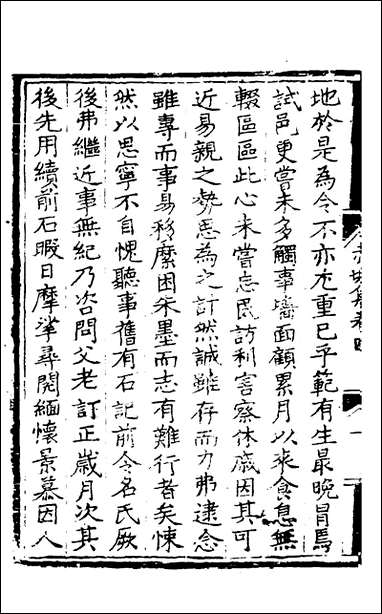 地於是為令不亦尤重已乎範有生最晚冒焉
試邑更嘗未多觸事墻面顧累月以來食息無
輟區區此心未嘗忘民訪利害察休戚因其可
近易親之勢悉為之計然誠雖存而力弗逮念
雖專而事易移縻困朱墨而志有難行者矣悚
然以思寧不自愧聽事舊有石記前令名氏厥
後弗繼近事無紀乃咨問父老訂正歲月次其
後先用續前石暇日摩挲尋閱緬懷景慕因人
赤城集卷四